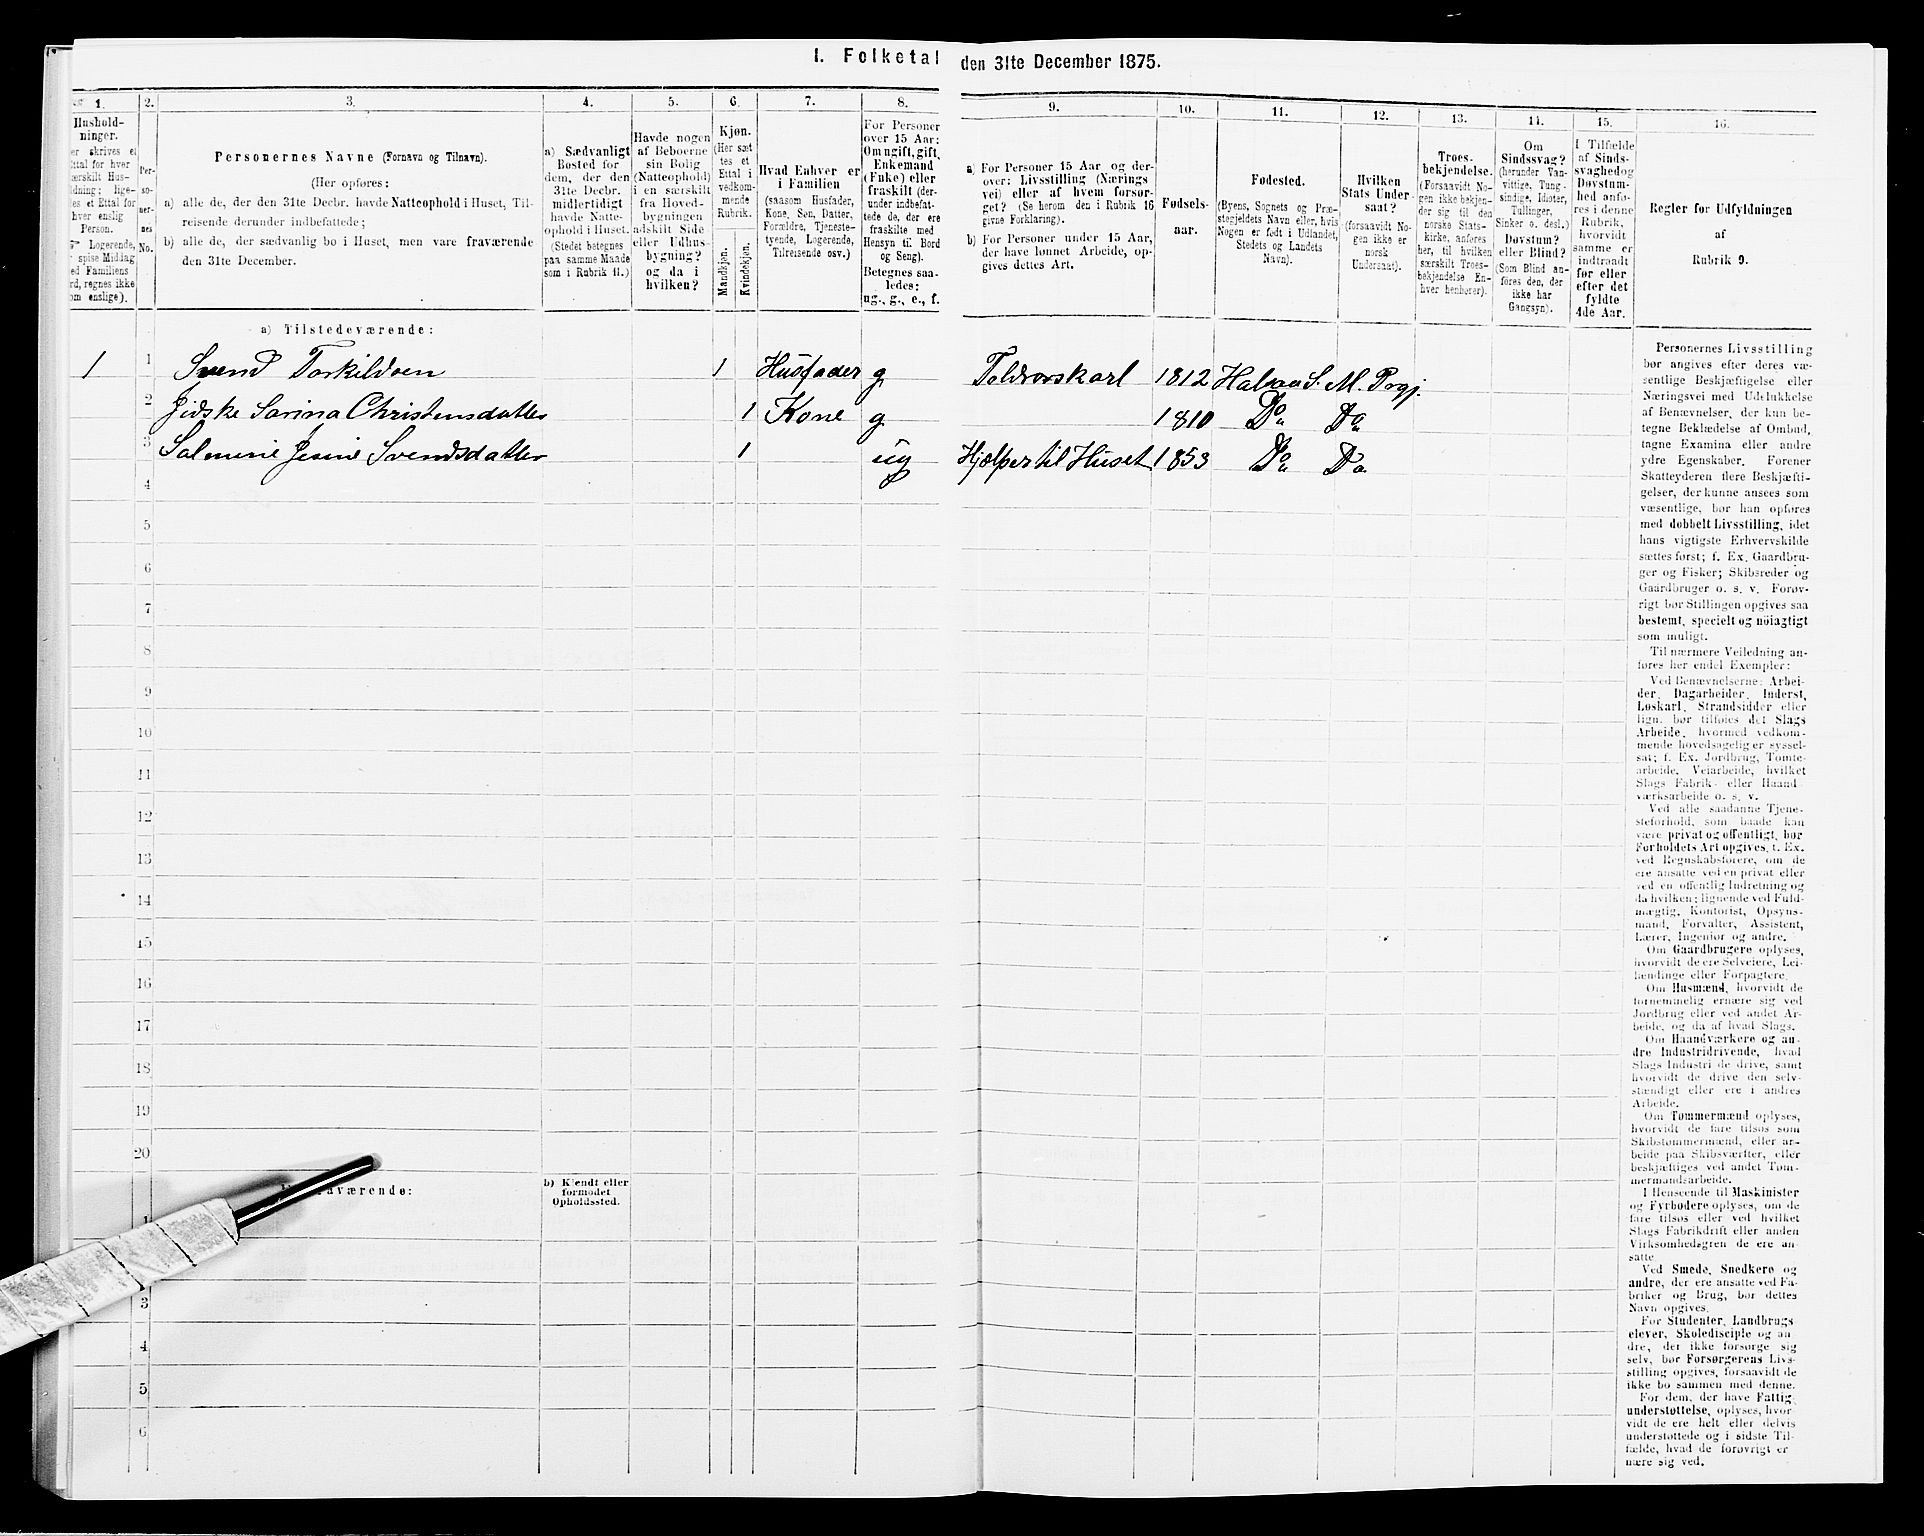 I. Folketal den 31te December 1875.
1. 2. 3. 4. 5. 6. 7. 8. 9. 10. 11. 12. 13. 14. 15. 16.
Hushold-
ninger.
er skrives et
Ettal for hver
særskilt Hus-
ldning; lige-
es et Ettal for
hver enslig
Person.
Logerende,
spise Middag
ed Familiens
rd, regnes ikke
om enslige).
Per-
so-
ner-
nes
No.
Personernes Navne (Fornavn og Tilnavn).
(Her opføres:
a) alle de, der den 31te Decbr. havde Natteophold i Huset, Til-
reisende derunder indbefattede;
b) alle de, der sædvanlig bo i Huset, men vare fraværende
den 31te December.
a) Sædvanligt
Bosted for
dem, der den
31te Decbr.
midlertidigt
havde Natte-
ophold i Huset.
(Stedet betegnes
paa samme Maade
som i Rubrik 11.)
Havde nogen
af Beboerne
sin Bolig
(Natteophold)
i en særskilt
fra Hoved-
bygningen
adskilt Side
eller Udhus-
bygning?
og da i
hvilken?
Kjøn.
(Her sæt
tes et
Ettal i
vedkom-
mende
Rubrik.
Mandkjøn.
Kvindekjøn.
Hvad Enhver er
i Familien
(saasom Husfader,
Kone, Søn, Datter,
Forældre, Tjeneste-
tyende, Logerende,
Tilreisende osv.)
For Personer
over 15 Aar:
Om ugift, gift,
Enkemand
(Enke) eller
fraskilt (der-
under indbefat-
tede de, der ere
fraskilte med
Hensyn til Bord
og Seng).
Betegnes saa-
ledes:
ug., g., e., f.
a) For Personer 15 Aar og der-
over: Livsstilling (Nærings
vei) eller af hvem forsør-
get? (Se herom den i Rubrik 16
givne Forklaring).
b) For Personer under 15 Aar,
der have lønnet Arbeide, op-
gives dettes Art.
Fødsels-
aar.
Fødested.
(Byens, Sognets og Præ-
stegjeldets Navn eller, hvis
Nogen er født i Udlandet,
Stedets og Landets
Navn).
Hvilken
Stats Under-
saat?
(forsaavidt No-
gen ikke er
norsk
Undersaat).
Troes-
bekjendelse.
(Forsaavidt No-
gen ikke bekjen-
der sig til den
norske Stats-
kirke, anføres
her, til hvilken
særskilt Troes-
bekjendelse En-
hver henhører).
Om
Sindssvag?
(herunder Van-
vittige, Tung-
sindige, Idioter,
Tullinger,
Sinker o. desl.)
Døvstum?
eller Blind?
(Som Blind an-
føres den, der
ikke har
Gangsyn).
I Tilfælde
af Sinds-
svaghed og
Døvstum-
hed anfø-
res i denne
Rubrik,
hvorvidt
samme er
indtraadt
før eller
efter det
fyldte
4de Aar.
Regler for Udfyldningen
af
Rubrik 9.
a) Tilstedeværende:
1 1 Svend Torkildsen 1 Husfader g Toldrorskarl 1812 Halsaa S. M. Prgj.
2 Jidske Sarina Christensdatter 1 Kone g 1810 Do Do
3 Salmine Jesine Svendsdatter 1 ug Hjælper til Huset 1853 Do Do
4
5
6
7
8
9
10
11
12
13
14
15
16
17
18
19
20
aværende:
b) Kjendt eller
formodet
Opholdssted.
1
3
4
5
6
Personernes Livsstilling
bør angives efter deres væ-
sentlige Beskjæftigelse eller
Næringsvei med Udelukkelse
af Benævnelser, der kun be-
tegne Beklædelse af Ombud,
tagne Examina eller andre
ydre Egenskaber. Forener
Skatteyderen flere Beskjæfti-
gelser, der kunne ansees som
væsentlige, bør han opføres
med dobbelt Livsstilling, idet
hans vigtigste Erhvervskilde
sættes først; f. Ex. Gaardbru-
ger og Fisker; Skibsreder og
Gaardbruger o. s. v. Forøv-
rigt bør Stillingen opgives saa
bestemt, specielt og nøiagtigt
som muligt.
Til nærmere Veiledning an-
føres her endel Exempler:
Ved Benævnelserne: Arbei-
der, Dagarbeider, Inderst,
Løskarl, Strandsidder eller
lign. bør tilføies det Slags
Arbeide, hvormed vedkom-
mende hovedsagelig er syssel-
sat; f. Ex. Jordbrug, Tomte-
arbeide, Veiarbeide, hvilket
Slags Fabrik- eller Haand-
værksarbeide o. s. v.
Ved alle saadanne Tjene-
steforhold, som baade kan
være privat og offentligt, bør
Forholdets Art opgives, f. Ex.
ved Regnskabsførere, om de
ere ansatte ved en privat eller
ved en offentlig Indretning og
da hvilken; lignende ved Fuld-
mægtig, Kontorist, Opsyns-
mand, Forvalter, Assistent,
Lærer, Ingeniør og andre.
Om Gaardbrugere oplyses,
hvorvidt de ere Selveiere, Lei-
lændinge eller Forpagtere.
Om Husmænd, hvorvidt de
fornemmelig ernære sig ved
Jordbrug eller ved andet Ar-
beide, og da af hvad Slags.
Om Haandværkere og an-
dre Industridrivende, hvad
Slags Industri de drive, samt
hvorvidt de drive den selv-
stændigt eller ere i andres
Arbeide.
Om Tømmermænd oplyses,
hvorvidt de fare tilsøs som
Skibstømmermænd, eller ar-
beide paa Skibsværfter, eller
beskjæftiges ved andet Tøm-
mermandsarbeide.
I Henseende til Maskinister
og Fyrbødere oplyses, om de
fare tilsøs eller ved hvilket
Slags Fabrikdrift eller anden
Virksomhedsgren de ere an-
satte.
Ved Smede, Snedkere og
andre, der ere ansatte ved Fa-
briker og Brug, bør dettes
Navn opgives.
For Studenter, Landbrugs
elever, Skoledisciple og an
dre, der ikke forsørge sig
selv, bør Forsørgerens Livs-
stilling opgives, forsaavidt de
ikke bo sammen med denne.
For dem, der have Fattig-
understøttelse, oplyses, hvor
vidt de ere helt eller delvis
understøttede og i sidste Til-
fælde, hvad de forøvrigt er
nære sig ved.